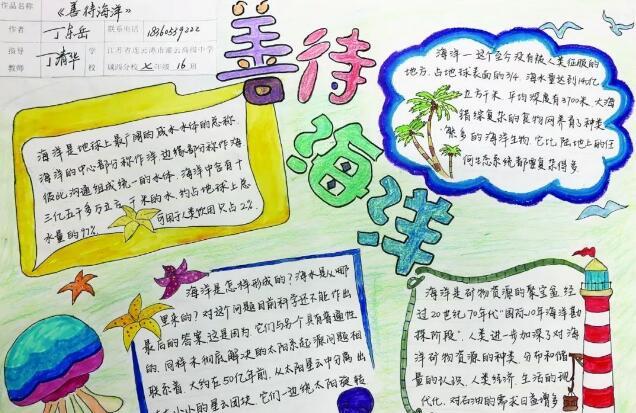 作品名称
《善待海洋》
作者
丁东岳
联系电话
指导
教师
丁清华
学
校
江苏省连云港市灌云高级中学
城西分校 七年级 16班
善待
海洋
海洋是地球上最广阔的咸水水体的总称
海洋的中心部分称作洋边缘部分称作海
彼此沟通组成统一的水体。海洋中含有十
三亿五千多万立方 千米的水,约占地球上总
水量的97%
可用于人类饮用只占2%.
海洋—这个至今没有被人类征服的
地方.占地球表面的3/4.海水量达到14亿
立方千米.平均深度有3700米.大海
错综复杂的食物网养育了种类
繁多的海洋生物.它比陆地上的任
何生态系统都要复杂得多.
海洋是怎样形成的?海水是从哪
里来的?对这个问题目前科学还不能作出
最后的答案这是因为.它们与另一个具有普遍性
的.同样未彻底解决的太阳系起源问题相
联系着.大约在50亿年前.从太阳星云中分离出
大大小小的星云团块.它们一边绕太阳旋转
海洋是矿物资源的聚宝盆.经
过20世纪70年代"国际10年海洋勘
探阶段".人类进一步加深了对海
洋矿物资源的种类.分布和储
量的认识.人类经济.生活的现
代化.对石油的需求日益增多